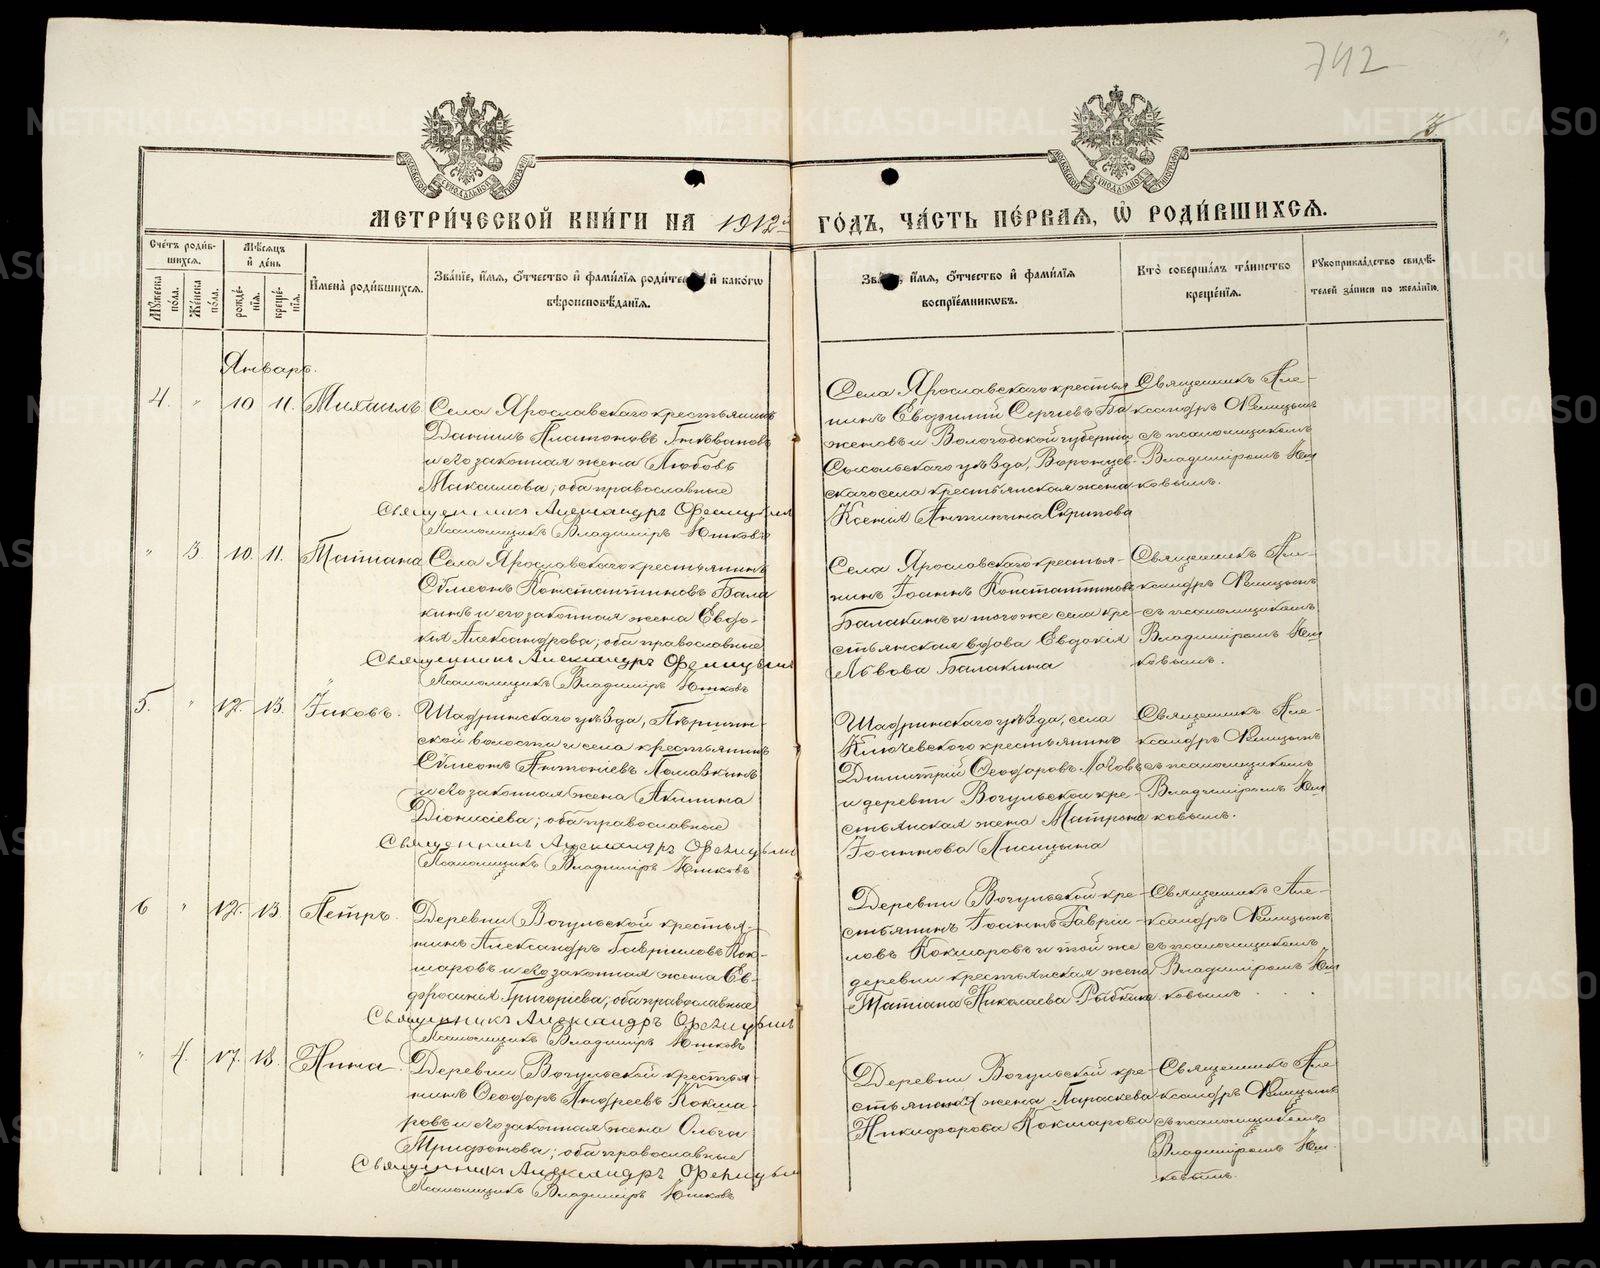 742
3
МЕТРИ́ЧЕСКОЙ КНИ́ГИ НА 1912й ГО́ДЪ, ЧА́СТЬ ПЕ́РВАЯ, Ѡ҆ РОДИ́ВШИХСЯ.
Сче́тъ роди́в-
шихся.
Мѣ́сяцъ
и҆ де́нь
Мꙋ́жеска по́ла.
Же́нска по́ла.
рожде́-
нїѧ.
креще́-
нїѧ.
И҆мена̀ роди́вшихся.
Зва́нїе, и҆́мѧ, ѻ҆́тчество и҆ фами́лїѧ роди́телей, и҆ како́гѡ
вѣроисповѣ́данїѧ.
Зва́нїе, и҆́мѧ, ѻ҆́тчество и҆ фами́лїѧ
воспрїе́мникѡвъ.
Кто̀ соверша́лъ та́инство
креще́нїѧ.
Рꙋкоприкла́дство свидѣ́-
телей за́писи по жела́нїю.
Январь.
4. " 10 11. Михаилъ
Села Ярославскаго крестьянинъ
Даніилъ Платоновъ Гнѣвановъ
и его законная жена Любовь
Максимова; оба православные
Священникъ Александръ Ѳелицынъ
Псаломщикъ Владиміръ Юшковъ
Села Ярославскаго кресть-
нинъ Евфимій Сергіевъ Ба
женовъ и Вологодской губерніи
Сысольскаго уѣзда, Воронцев-
скаго села крестьянская жена
Ксенія Антипина Скрипова
Священникъ Але-
ксандръ Ѳелицынъ
съ псаломщикомъ
Владиміромъ Юш
ковымъ.
" 3 10. 11. Татіана
Села Ярославскаго крестьянинъ
Сѵмеонъ Константиновъ Бала
кинъ и его законная жена Евдо-
кія Александрова; оба православные
Священникъ Александръ Ѳелицынъ
Псаломщикъ Владиміръ Юшковъ
Села Ярославскаго крестья-
нинъ Іоаннъ Константиновъ
Балакинъ и того же села кре-
стьянская вдова Евдокія
Львова Балакина
Священникъ Але-
ксандръ Ѳелицынъ
съ псаломщикомъ
Владиміромъ Юш
ковымъ.
5. " 12. 13. Іаковъ.
Шадринскаго уѣзда,
ской волости и села крестьянинъ
Сѵмеонъ Антоніевъ
и его законная жена Акилина
Діонисіева; оба православные
Священникъ Александръ Ѳелицынъ
Псаломщикъ Владиміръ Юшковъ
Шадринскаго уѣзда, села
Ключевскаго крестьянинъ
Димитрій Ѳеодоровъ
и деревни Вогульской кре-
стьянская жена Матрона
Іоаннова Лисицына
Священникъ Але-
ксандръ Ѳелицынъ
съ псаломщикомъ
Владиміромъ Юш
ковымъ.
6 " 12. 13. Петръ.
Деревни Вогульской крестья-
нинъ Александръ Гавриловъ Кок-
шаровъ и его законная жена Ев-
фросинія Григоріева; оба православные
Священникъ Александръ Ѳелицынъ
Псаломщикъ Владиміръ Юшковъ
Деревни Вогульской кре-
стьянинъ Іоаннъ Гавріи-
ловъ Кокшаровъ и той же
деревни крестьянская жена
Татіана Николаева Рыбкина
Священникъ Але-
ксандръ Ѳелицынъ
съ псаломщикомъ
Владиміромъ Юш
ковымъ
" 4. 17. 18. Нина.
Деревни Вогульской крестья-
нинъ Ѳеодоръ Андреевъ Кокша-
ровъ и его законная жена Ольга
Трифонова; оба православные
Священникъ Александръ Ѳелицынъ
Псаломщикъ Владиміръ Юшковъ
Деревни Вогульской кре-
стьянская жена Параскева
Никифорова Кокшарова
Священникъ Але
ксандръ Ѳелицынъ
съ псаломщикомъ
Владиміромъ Юш-
ковымъ.
METRIKI.GASO-URAL.RU